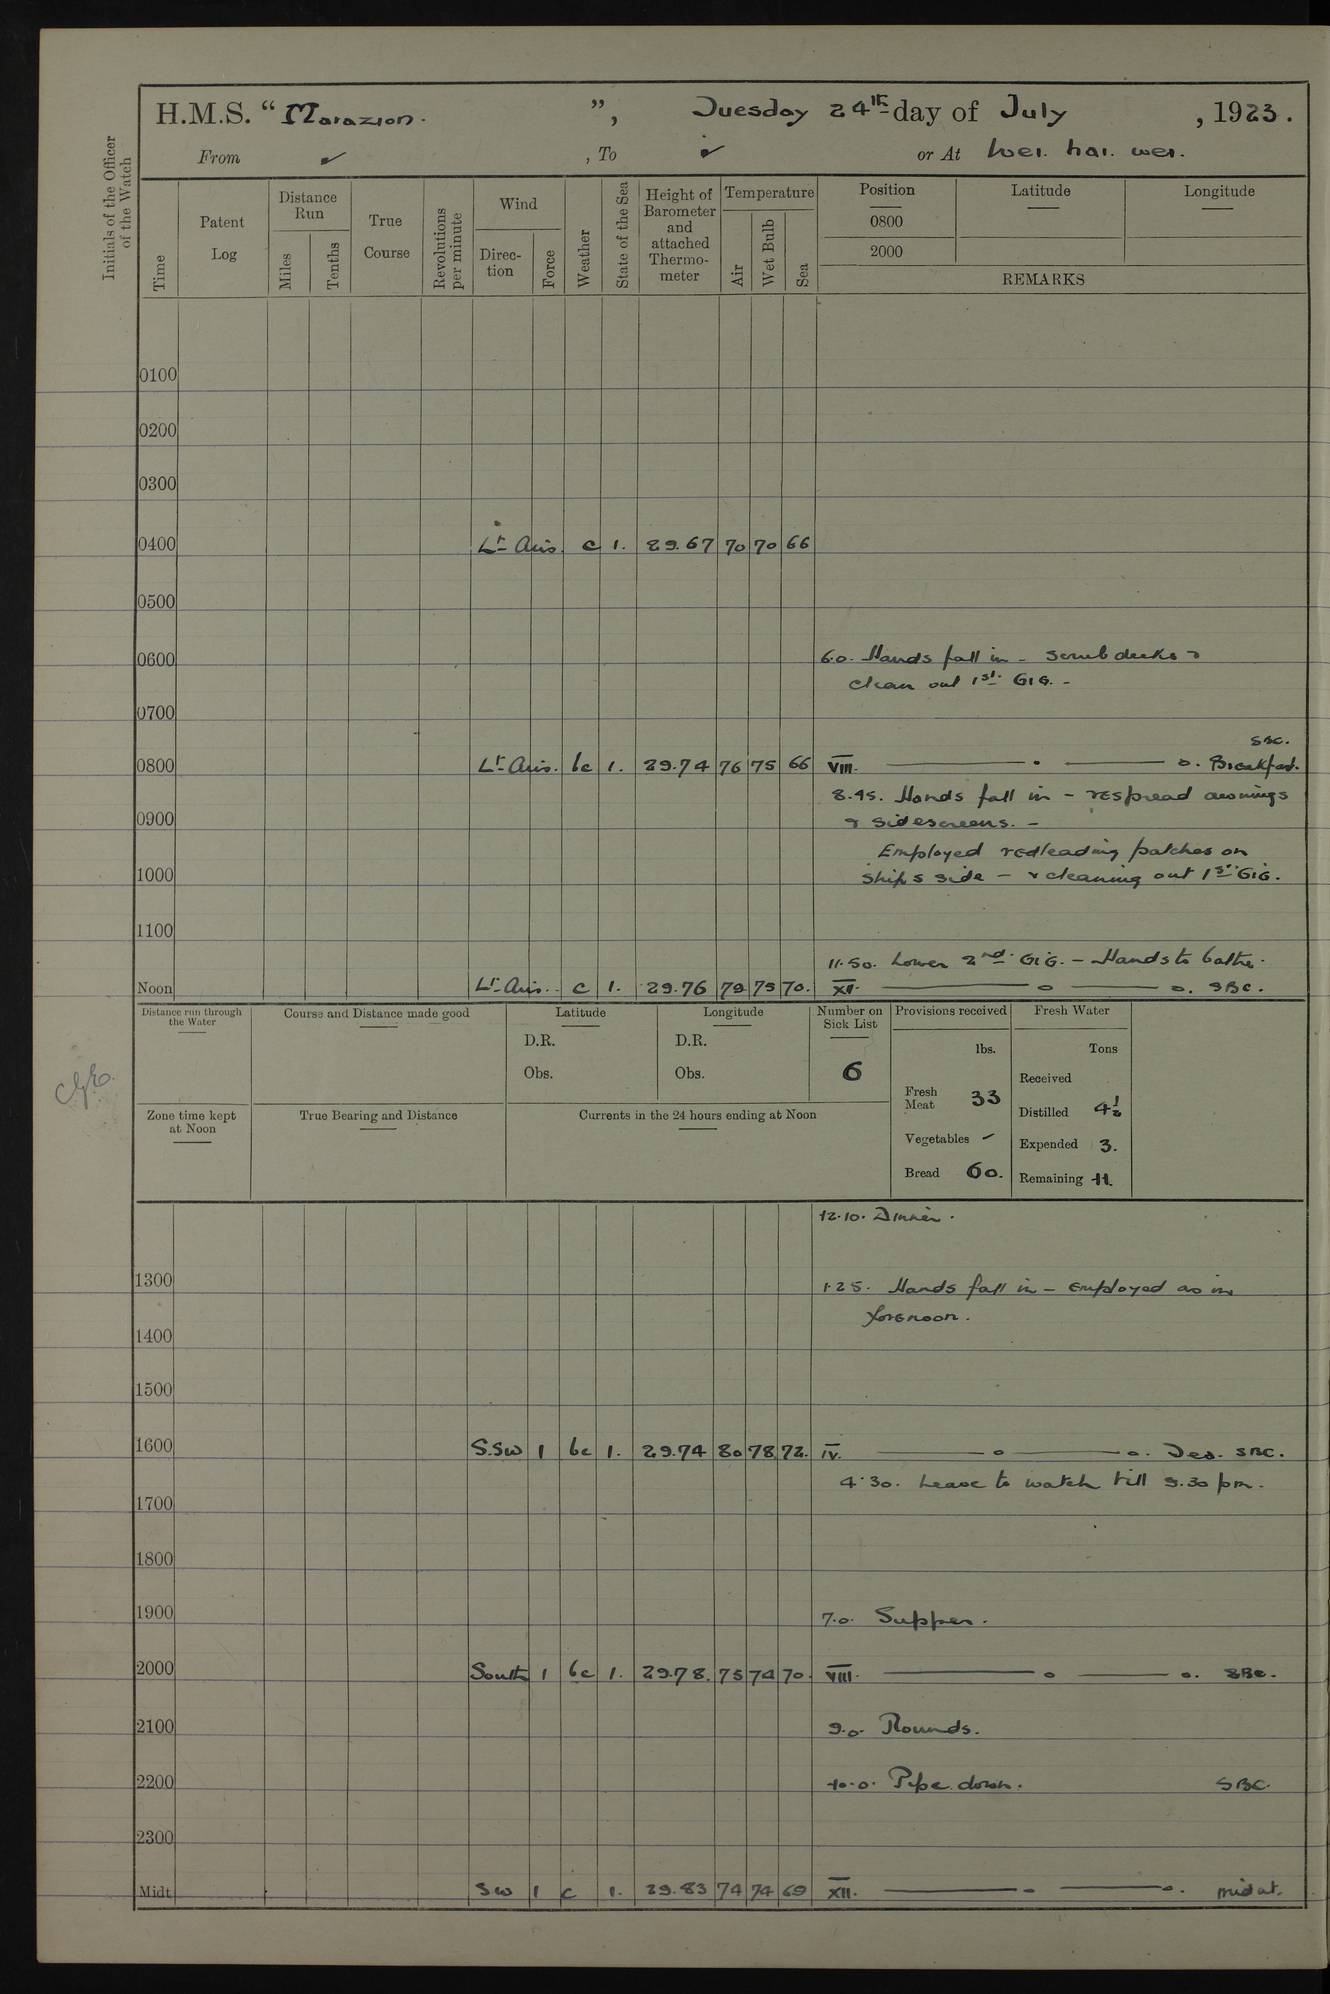 H.M.S. “Marazion.”, Tuesday 24th day of July, 1923.
From ✓, To ✓ or At Wei. hai. wei.
Initials of the Officer of the Watch
Time
Patent Log
Distance Run
Miles
Tenths
True Course
Revolutions per minute
Wind
Direction
Force
Weather
State of the Sea
Height of Barometer and attached Thermometer
Temperature
Air
Wet Bulb
Sea
Position
0800
2000
Latitude
Longitude
REMARKS
0100
0200
0300
0400 Lt Airs. c 1. 29.67 70 70 66
0500
0600 6.0. Hands fall in - scrub decks &
clean out 1st Gig. -
0700
SBC.
0800 Lt Airs. bc 1. 29.74 76 75 66 VIII. — o — o. Breakfast.
8.45. Hands fall in - respread awnings
0900 & sidescreens. -
Employed redleading patches on
1000 ships side - & cleaning out 1st Gig.
1100
11.50. Lower 2nd Gig. - Hands to bathe.
Noon Lt Airs. c 1. 29.76 79 75 70. XII. — o — o. SBC.
Distance run through the Water
Course and Distance made good
Latitude
D.R.
Obs.
Longitude
D.R.
Obs.
Number on Sick List
6
Provisions received
lbs.
Fresh Meat 33
Vegetables -
Bread 60.
Fresh Water
Tons
Received
Distilled 4½
Expended 3.
Remaining 11.
Zone time kept at Noon
True Bearing and Distance
Currents in the 24 hours ending at Noon
12.10. Dinner.
1300 1.25. Hands fall in - employed as in
forenoon.
1400
1500
1600 S.SW 1 bc 1. 29.74 80 78 72. IV. — o — o. Tea. SBC.
4.30. Leave to watch till 9.30 pm.
1700
1800
1900 7.0. Supper.
2000 South 1 bc 1. 29.78. 75 74 70. VIII. — o — o. SBC.
2100 9.0. Rounds.
2200 10.0. Pipe down. SBC.
2300
Midt SW 1 c 1. 29.83 74 74 69 XII. — o — o.